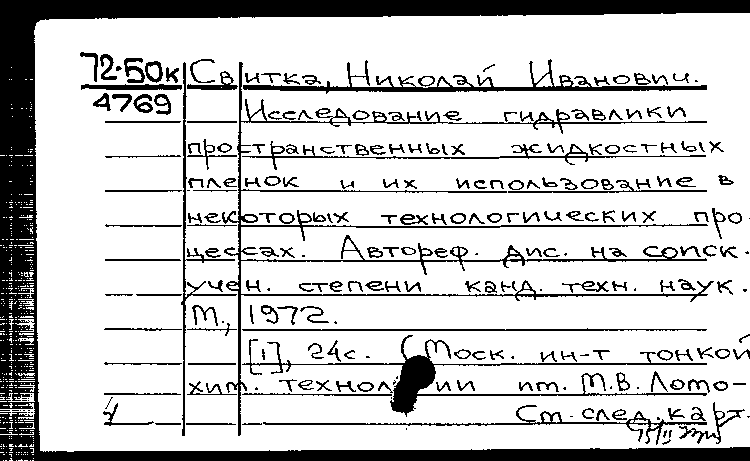 72-50к Свитка, Николай Иванович.
4769 Исследование гидравлики
пространственных жидкостных
пленок и их использование в
некоторых технологических про-
цессах. Автореф. дис. на соиск.
учен. степени канд. техн. наук.
М., 1972.
[1], 24с. (Моск. ин-т тонкой
хим. технологии им. М.В. Ломо-
См. след. карт.